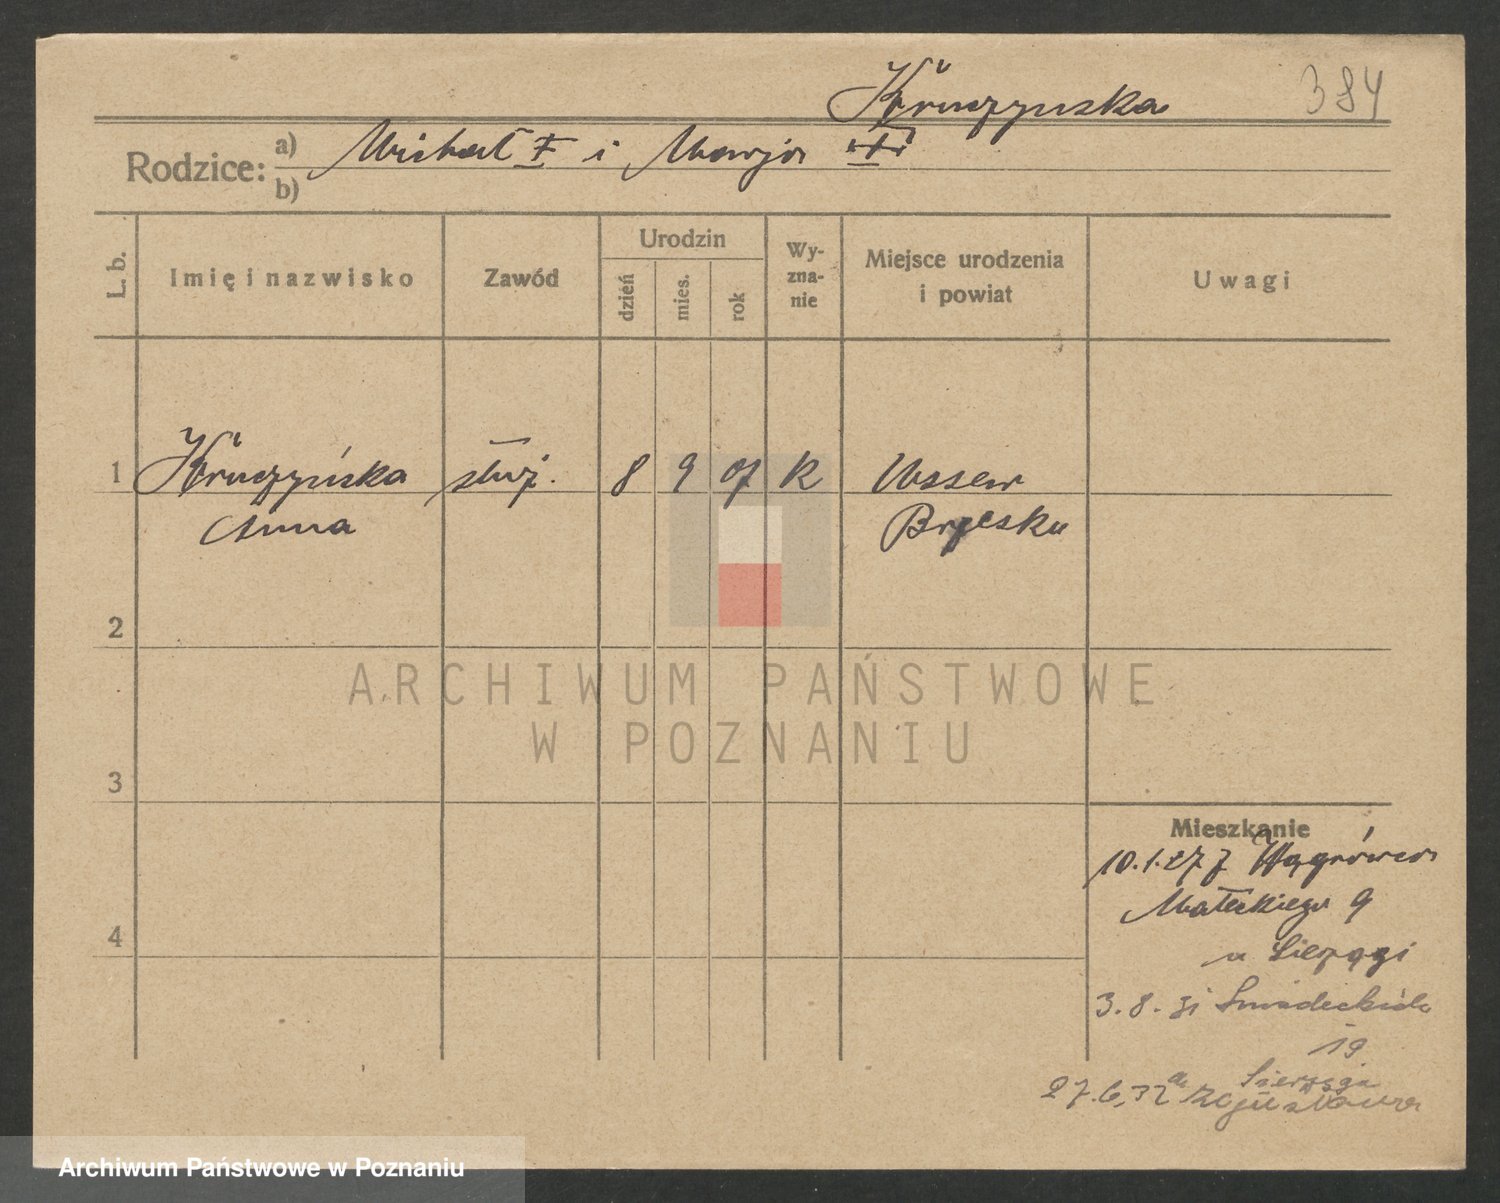 Kruczyńska
384
Rodzice: a) Michał i Marja
b)
L. b.
Imię i nazwisko
Zawód
Urodzin
dzień
mies.
rok
Wy-
zna-
nie
Miejsce urodzenia
i powiat
Uwagi
1 Kruczyńska służ. 8 9 07 R
Anna
2
ARCHIWUM PAŃSTWOWE
W POZNANIU
3
Mieszkanie
10.1.27 z Wągrówca
9
4
3.8.31 Śniadeckich
19
27.6.32
Archiwum Państwowe w Poznaniu